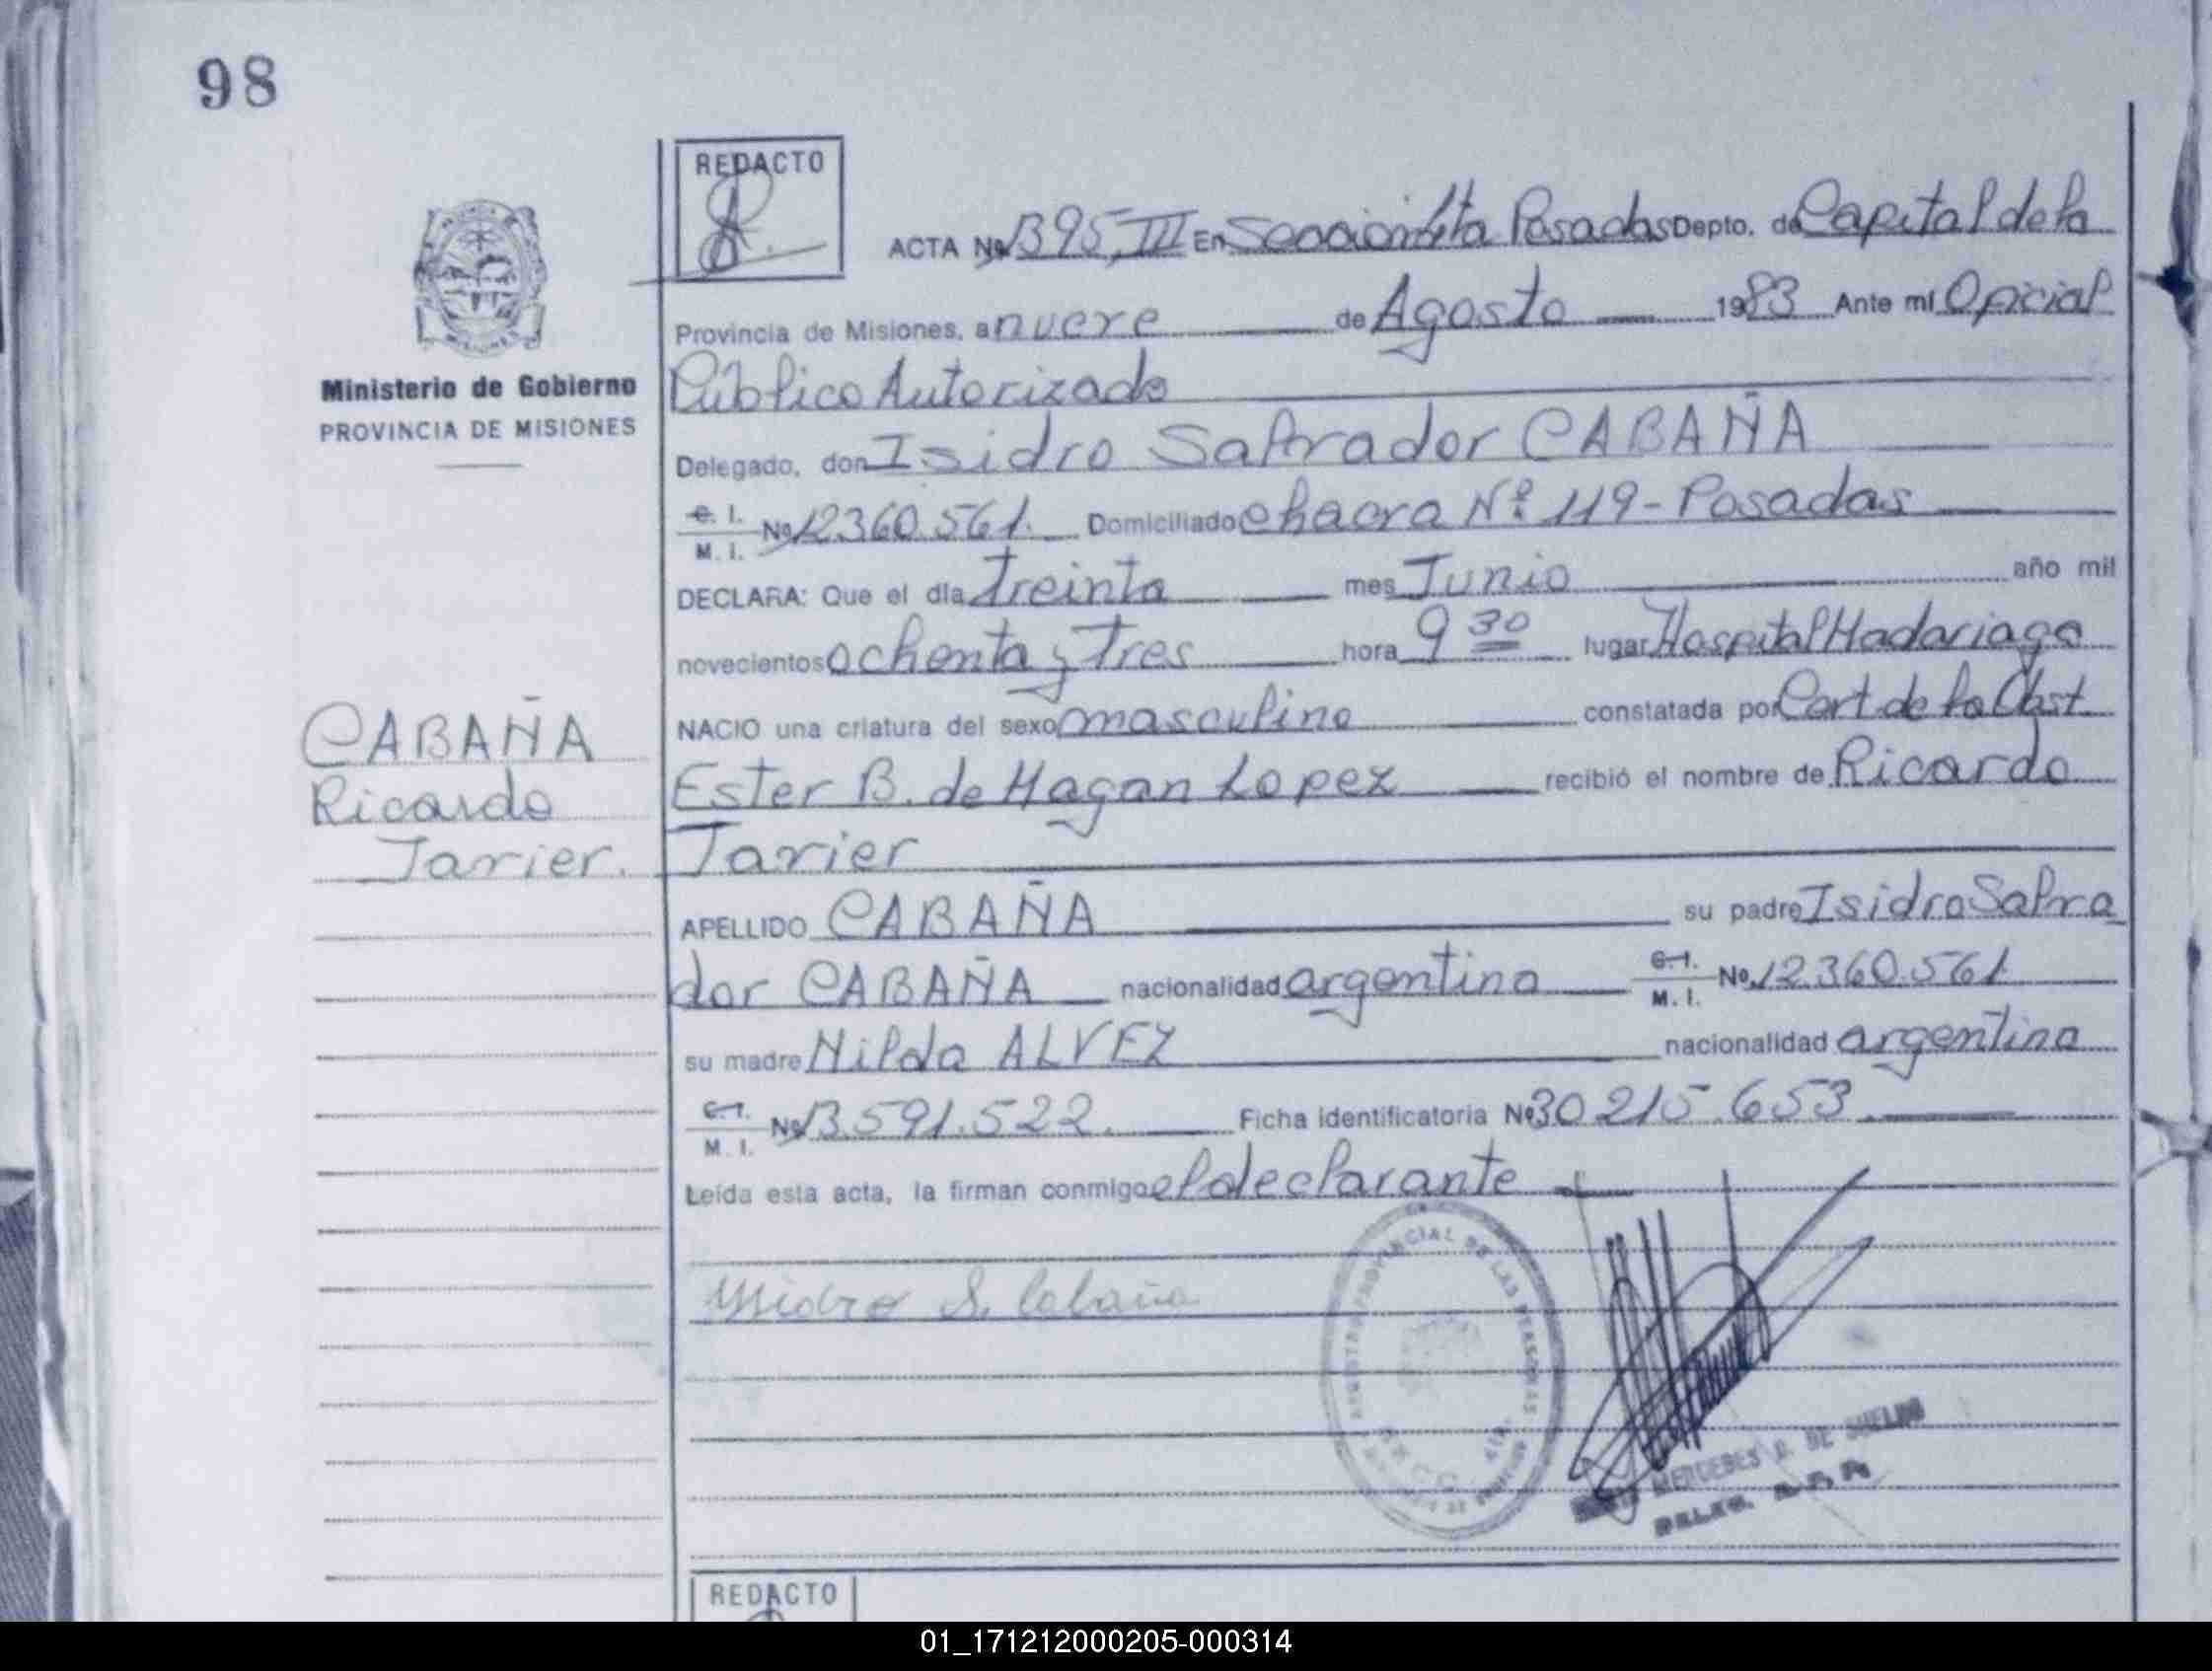 98
REDACTO
ACTA Nº 1395, III En Sección 6ta Posadas Depto. de Capital de la
Provincia de Misiones, a nueve de Agosto 1983 Ante mí Oficial
Público Autorizado
Delegado, don Isidro Salvador CABAÑA
C. I.
M. I. Nº 12.360.561. Domiciliado Chacra Nº 119 - Posadas
DECLARA: Que el día treinta mes Junio año mil
novecientos ochenta y Tres hora 9 30 lugar Hospital Madariaga
NACIO una criatura del sexo masculino constatada por Cert de la Obst.
Ester B. de Hagan Lopez recibió el nombre de Ricardo
Javier
APELLIDO CABAÑA su padre Isidro Salva
dor CABAÑA nacionalidad argentina C. I.
M. I. Nº 12.360.561
su madre Nilda ALVEZ nacionalidad argentina
C. I.
M. I. Nº 13.591.522. Ficha identificatoria Nº 30.215.653.
Leída esta acta, la firman conmigo el declarante
Isidro S. Cabaña
PROVINCIAL DE LAS PERSONAS
MERCEDES DE
DELEG. R. P. P.
Ministerio de Gobierno
PROVINCIA DE MISIONES
CABAÑA
Ricardo
Javier.
REDACTO
01_171212000205-000314